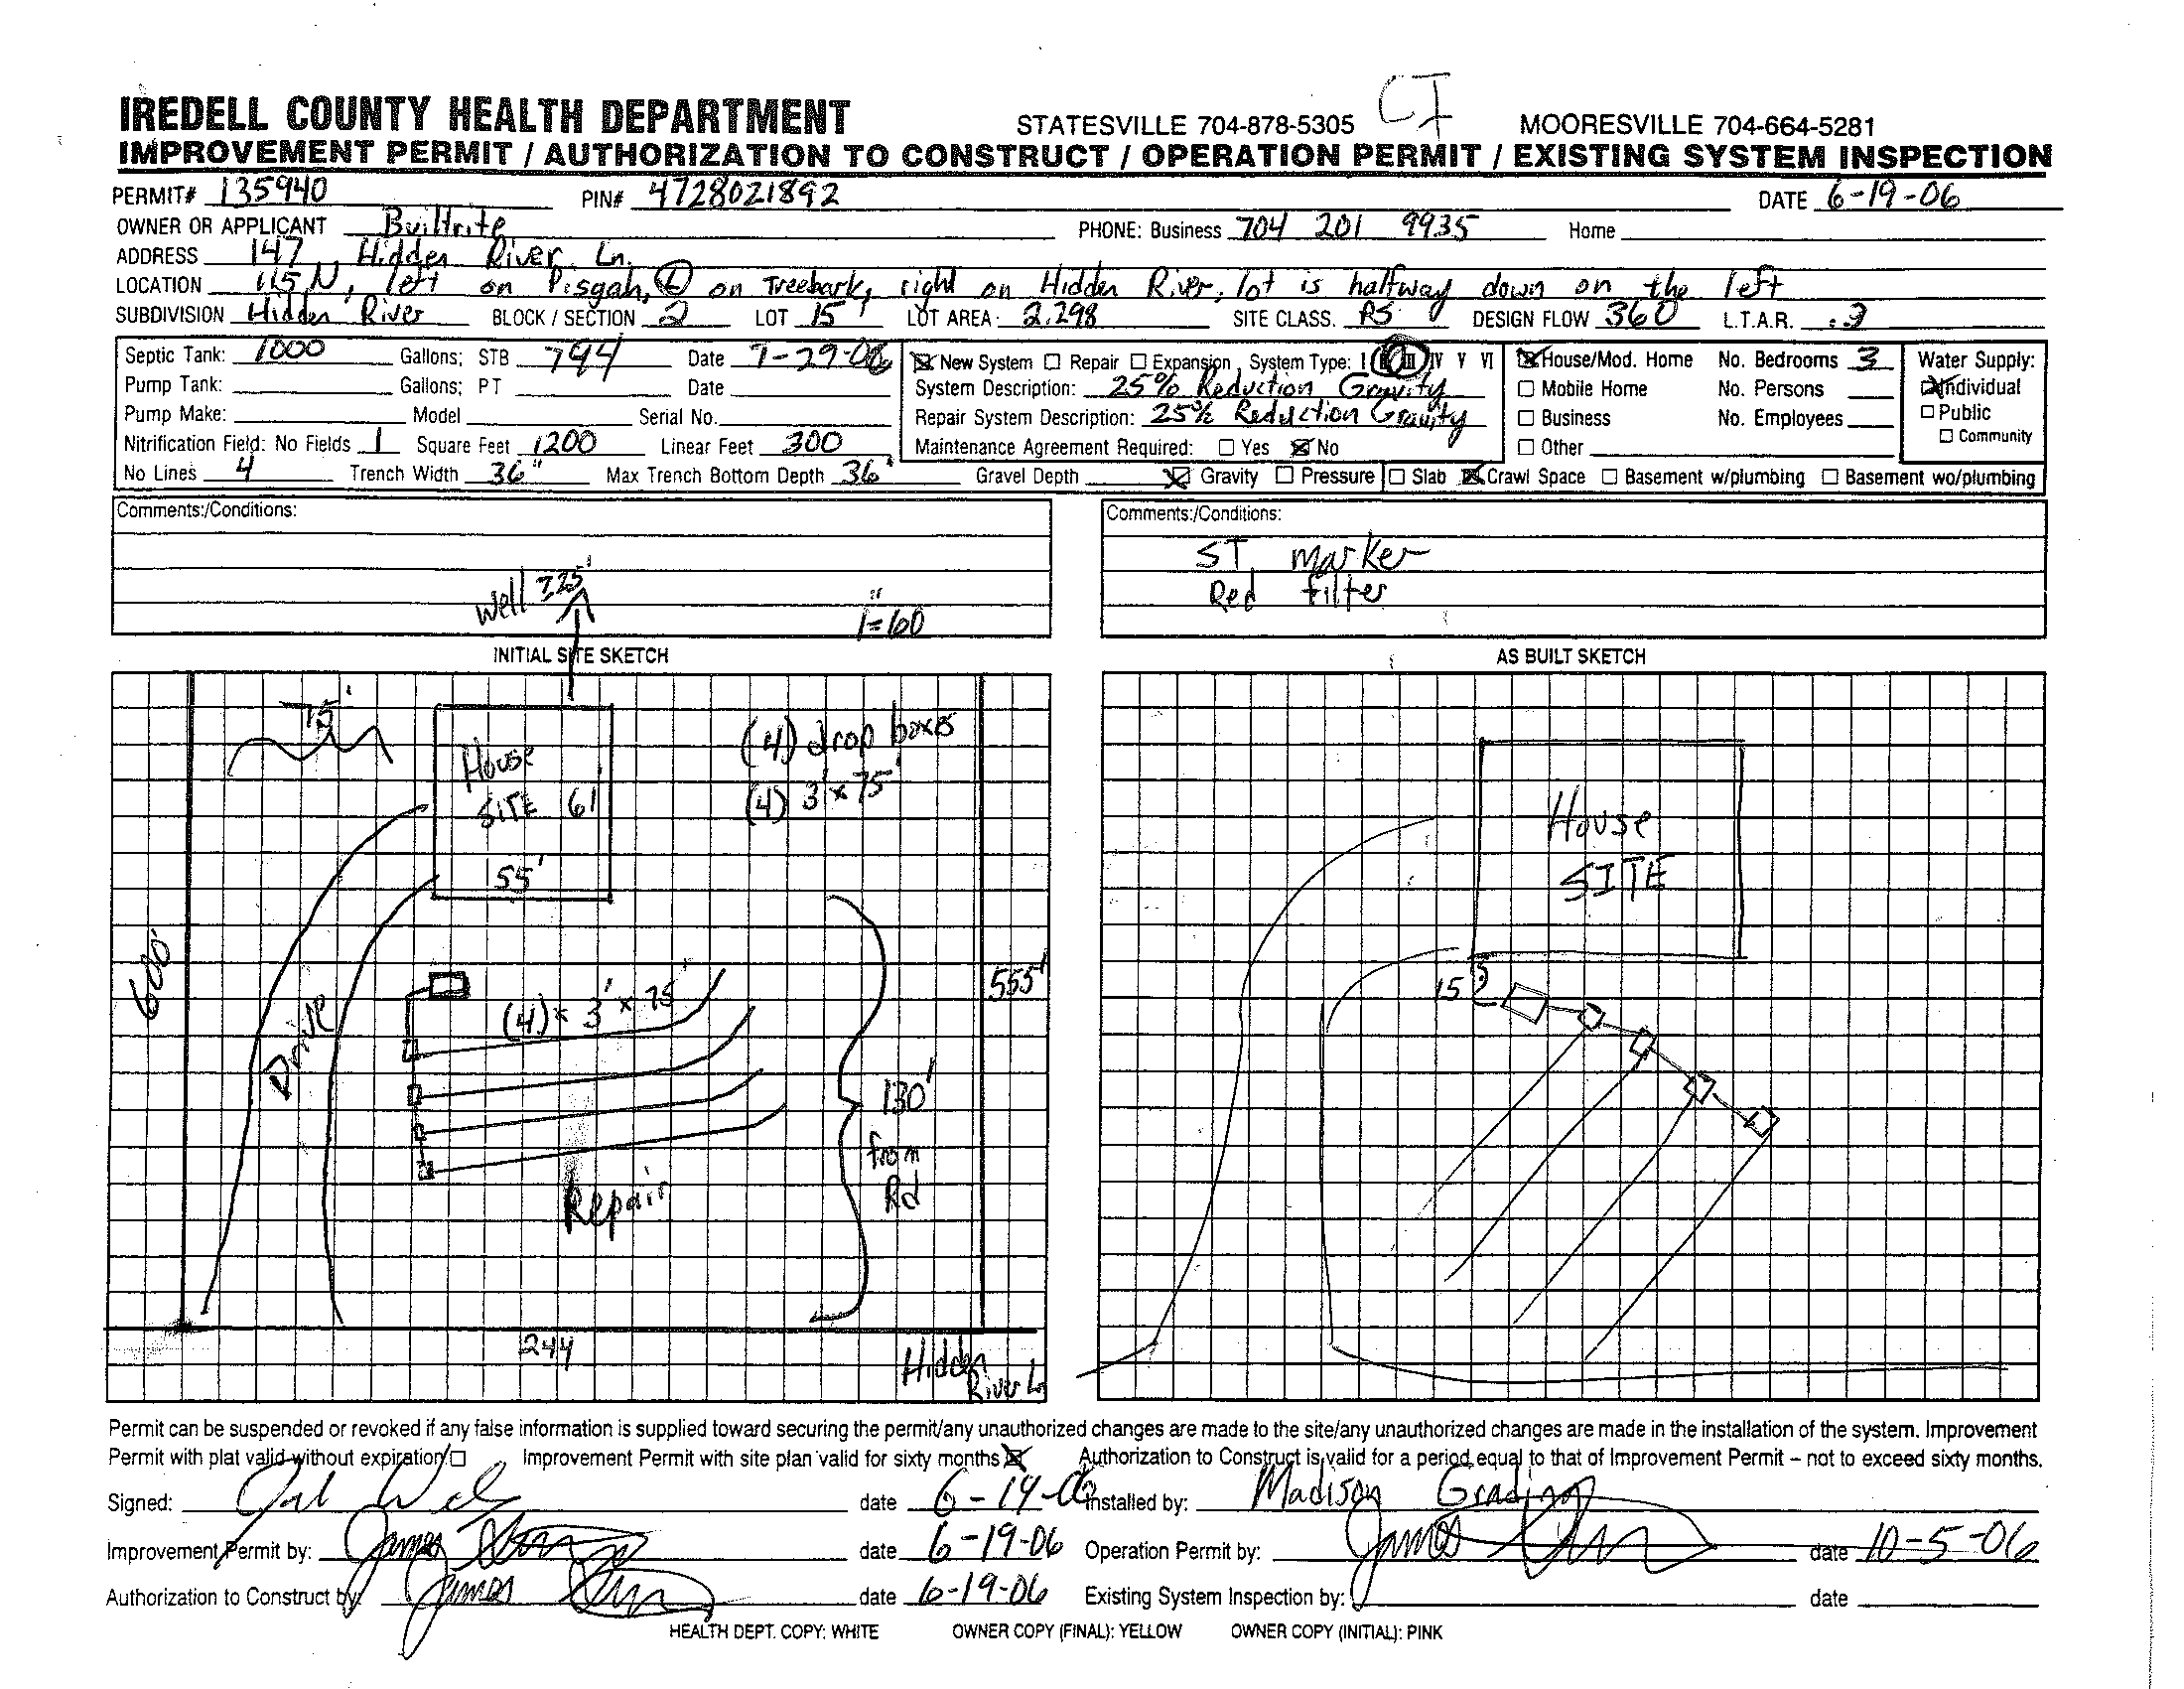 CI
IREDELL COUNTY HEALTH DEPARTMENT STATESVILLE 704-878-5305 MOORESVILLE 704-664-5281
IMPROVEMENT PERMIT / AUTHORIZATION TO CONSTRUCT / OPERATION PERMIT / EXISTING SYSTEM INSPECTION
PERMIT# 135940 PIN# 4728021892 DATE 6-19-06
OWNER OR APPLICANT Builtrite PHONE: Business 704 201 9935 Home
ADDRESS 147 Hidden River Ln.
LOCATION 115 N, left on Pisgah, (L) on Treebark, right on Hidden River, lot is halfway down on the left
SUBDIVISION Hidden River BLOCK / SECTION 2 LOT 15 LOT AREA 2.298 SITE CLASS. PS DESIGN FLOW 360 L.T.A.R. .3
Septic Tank: 1000 Gallons; STB 794 Date 7-29-06 ☒ New System ☐ Repair ☐ Expansion System Type: I II III IV V VI ☒ House/Mod. Home No. Bedrooms 3 Water Supply:
Pump Tank: Gallons; PT Date System Description: 25% Reduction Gravity ☐ Mobile Home No. Persons ☒ Individual
Pump Make: Model Serial No. Repair System Description: 25% Reduction Gravity ☐ Business No. Employees ☐ Public
Nitrification Field: No Fields 1 Square Feet 1200 Linear Feet 300 Maintenance Agreement Required: ☐ Yes ☒ No ☐ Other ☐ Community
No Lines 4 Trench Width 36" Max Trench Bottom Depth 36" Gravel Depth ☒ Gravity ☐ Pressure ☐ Slab ☒ Crawl Space ☐ Basement w/plumbing ☐ Basement wo/plumbing
Comments:/Conditions:
Well 225'
1"=60
Comments:/Conditions:
ST marker
Red filter
INITIAL SITE SKETCH
75'
House
SITE 61'
55'
(4) drop boxes
(4) 3' x 75'
600'
Drive
(4) x 3' x 75'
555'
130'
from
Rd
Repair
244
Hidden
River Ln
AS BUILT SKETCH
House
SITE
15'
Permit can be suspended or revoked if any false information is supplied toward securing the permit/any unauthorized changes are made to the site/any unauthorized changes are made in the installation of the system. Improvement
Permit with plat valid without expiration ☐ Improvement Permit with site plan valid for sixty months ☒ Authorization to Construct is valid for a period equal to that of Improvement Permit – not to exceed sixty months.
Signed: date 6-14-06 Installed by: Madison Grading
Improvement Permit by: James date 6-19-06 Operation Permit by: James date 10-5-06
Authorization to Construct by: James date 6-19-06 Existing System Inspection by: date
HEALTH DEPT. COPY: WHITE OWNER COPY (FINAL): YELLOW OWNER COPY (INITIAL): PINK